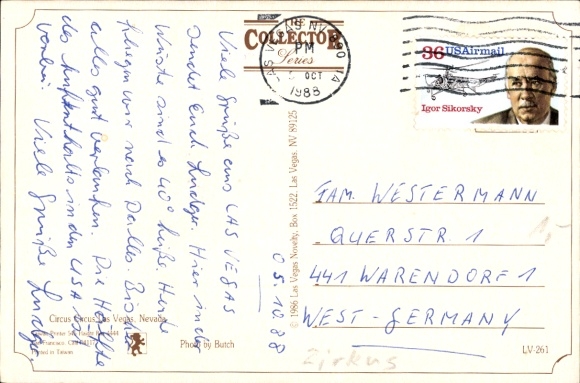 THE
COLLECTOR
Series
LAS VEGAS NV 890
PM
OCT
1988
36 USAirmail
Igor Sikorsky
Viele Grüße aus LAS VEGAS
sendet Euch Ludger. Hier in der
Wüste sind es 40° heiße. Heute
fliegen wir nach Dallas. Bisher
alles gut verlaufen. Die Hälfte
des Aufenthalts in den USA ist
vorbei. Viele Grüße Ludger
05.10.88
© 1986 Las Vegas Novelty, Box 1522, Las Vegas, NV 89125
FAM. WESTERMANN
QUERSTR. 1
441 WARENDORF 1
WEST-GERMANY
1,-
Zirkus
Circus Circus Las Vegas, Nevada
Printed in Taiwan
Photo by Butch
LV-261